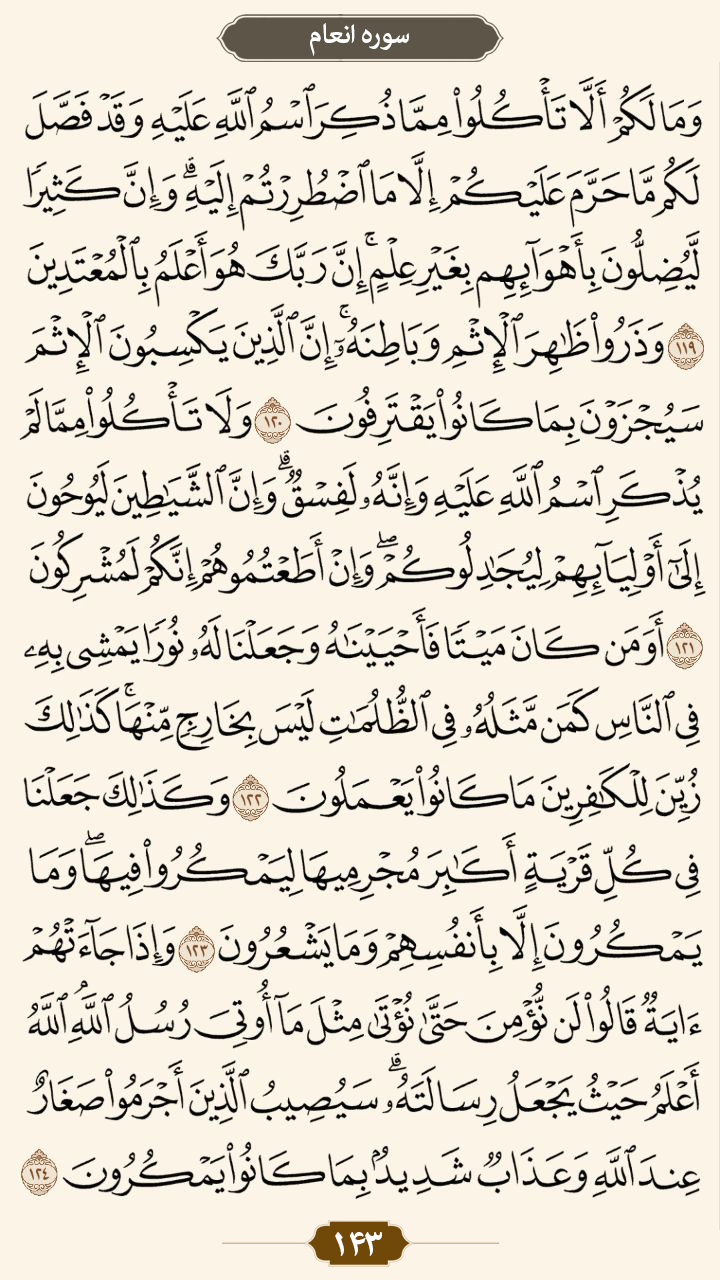 سوره انعام
وَمَا لَكُمْ أَلَّا تَأْكُلُوا۟ مِمَّا ذُكِرَ ٱسْمُ ٱللَّهِ عَلَيْهِ وَقَدْ فَصَّلَ
لَكُم مَّا حَرَّمَ عَلَيْكُمْ إِلَّا مَا ٱضْطُرِرْتُمْ إِلَيْهِۗ وَإِنَّ كَثِيرًا
لَّيُضِلُّونَ بِأَهْوَآئِهِم بِغَيْرِ عِلْمٍۚ إِنَّ رَبَّكَ هُوَ أَعْلَمُ بِٱلْمُعْتَدِينَ
١١٩ وَذَرُوا۟ ظَٰهِرَ ٱلْإِثْمِ وَبَاطِنَهُۥٓۚ إِنَّ ٱلَّذِينَ يَكْسِبُونَ ٱلْإِثْمَ
سَيُجْزَوْنَ بِمَا كَانُوا۟ يَقْتَرِفُونَ ١٢٠ وَلَا تَأْكُلُوا۟ مِمَّا لَمْ
يُذْكَرِ ٱسْمُ ٱللَّهِ عَلَيْهِ وَإِنَّهُۥ لَفِسْقٌۗ وَإِنَّ ٱلشَّيَٰطِينَ لَيُوحُونَ
إِلَىٰٓ أَوْلِيَآئِهِمْ لِيُجَٰدِلُوكُمْۖ وَإِنْ أَطَعْتُمُوهُمْ إِنَّكُمْ لَمُشْرِكُونَ
١٢١ أَوَمَن كَانَ مَيْتًا فَأَحْيَيْنَٰهُ وَجَعَلْنَا لَهُۥ نُورًا يَمْشِى بِهِۦ
فِى ٱلنَّاسِ كَمَن مَّثَلُهُۥ فِى ٱلظُّلُمَٰتِ لَيْسَ بِخَارِجٍ مِّنْهَاۚ كَذَٰلِكَ
زُيِّنَ لِلْكَٰفِرِينَ مَا كَانُوا۟ يَعْمَلُونَ ١٢٢ وَكَذَٰلِكَ جَعَلْنَا
فِى كُلِّ قَرْيَةٍ أَكَٰبِرَ مُجْرِمِيهَا لِيَمْكُرُوا۟ فِيهَاۖ وَمَا
يَمْكُرُونَ إِلَّا بِأَنفُسِهِمْ وَمَا يَشْعُرُونَ ١٢٣ وَإِذَا جَآءَتْهُمْ
ءَايَةٌ قَالُوا۟ لَن نُّؤْمِنَ حَتَّىٰ نُؤْتَىٰ مِثْلَ مَآ أُوتِىَ رُسُلُ ٱللَّهِۘ ٱللَّهُ
أَعْلَمُ حَيْثُ يَجْعَلُ رِسَالَتَهُۥۗ سَيُصِيبُ ٱلَّذِينَ أَجْرَمُوا۟ صَغَارٌ
عِندَ ٱللَّهِ وَعَذَابٌ شَدِيدٌۢ بِمَا كَانُوا۟ يَمْكُرُونَ ١٢٤
۱۴۳